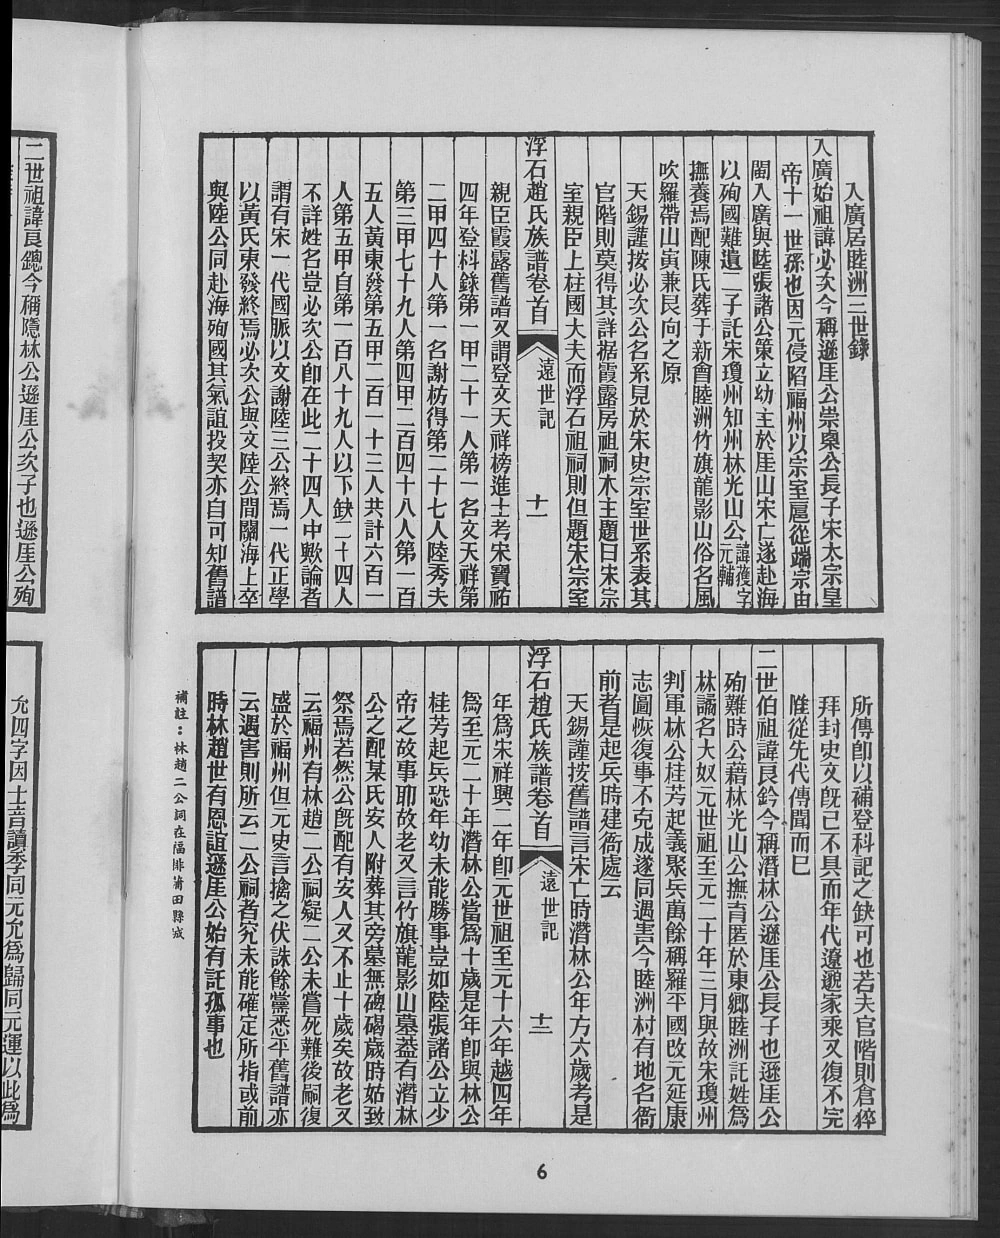 入廣居睦洲三世錄
入廣始祖諱必次今稱遜厓公崇㮚公長子宋太宗皇
帝十一世孫也因元侵陷福州以宗室扈從端宗由
閩入廣與陸張諸公策立幼主於厓山宋亡遂赴海
以殉國難遺二子託宋瓊州知州林光山公諱薆字元輔
撫養焉配陳氏葬于新會睦洲竹旗龍影山俗名風
吹羅帶山寅兼艮向之原
天錫謹按必次公名系見於宋史宗室世系表其
官階則莫得其詳据霞露房祖祠木主題曰宋宗
室親臣上柱國大夫而浮石祖祠則但題宋宗室
浮石趙氏族譜卷首 遠世記 十一
親臣霞露舊譜又謂登文天祥榜進士考宋寶祐
四年登科錄第一甲二十一人第一名文天祥第
二甲四十人第一名謝枋得第二十七人陸秀夫
第三甲七十九人第四甲二百四十八人第一百
五人黃東發第五甲二百一十三人共計六百一
人第五甲自第一百八十九人以下缺二十四人
不詳姓名豈必次公卽在此二十四人中歟論者
謂有宋一代國脈以文謝陸三公終焉一代正學
以黃氏東發終焉必次公與文陸公間關海上卒
與陸公同赴海殉國其氣誼投契亦自可知舊譜
所傳卽以補登科記之缺可也若夫官階則倉猝
拜封史文旣已不具而年代遼邈家乘又復不完
惟從先代傳聞而已
二世伯祖諱艮鈐今稱潛林公遜厓公長子也遜厓公
殉難時公藉林光山公撫育匿於東鄉睦洲託姓爲
林譌名大奴元世祖至元二十年三月與故宋瓊州
判軍林公桂芳起義聚兵萬餘稱羅平國改元延康
志圖恢復事不克成遂同遇害今睦洲村有地名衙
前者是起兵時建衙處云
天錫謹按舊譜言宋亡時潛林公年方六歲考是
浮石趙氏族譜卷首 遠世記 十二
年爲宋祥興二年卽元世祖至元十六年越四年
爲至元二十年潛林公當爲十歲是年卽與林公
桂芳起兵恐年幼未能勝事豈如陸張諸公立少
帝之故事耶故老又言竹旗龍影山墓葢有潛林
公之配某氏安人附葬其旁墓無碑碣歲時姑致
祭焉若然公旣配有安人又不止十歲矣故老又
云福州有林趙二公祠疑二公未嘗死難後嗣復
盛於福州但元史言擒之伏誅餘黨悉平舊譜亦
云遇害則所云二公祠者究未能確定所指或前
時林趙世有恩誼遜厓公始有託孤事也
補註：林趙二公詞在福排莆田縣成
6
二世祖諱艮鏓今稱隱林公遜厓公次子也遜厓公殉
允四字因士音讀季同元允爲歸同元運以此爲